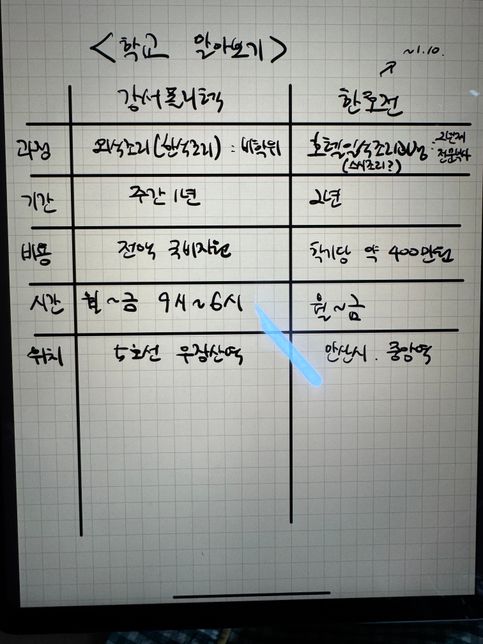 <학교 알아보기>
~1.10.
강서폴리텍 한호전
과정 외식조리(한식조리) : 비학위 호텔일식조리과정 : 2년제 전문학사
(스시조리?)
기간 주간 1년 2년
비용 전액 국비지원 학기당 약 400만원
시간 월~금 9시~6시 월~금
위치 5호선 우장산역 안산시. 중앙역